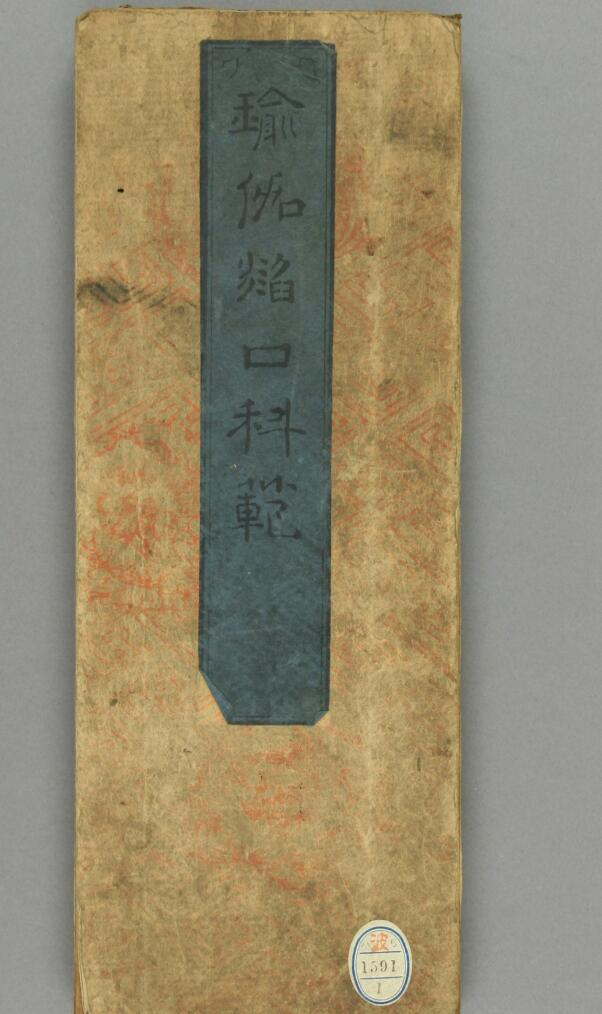 瑜伽焰口科範
波
1591
1